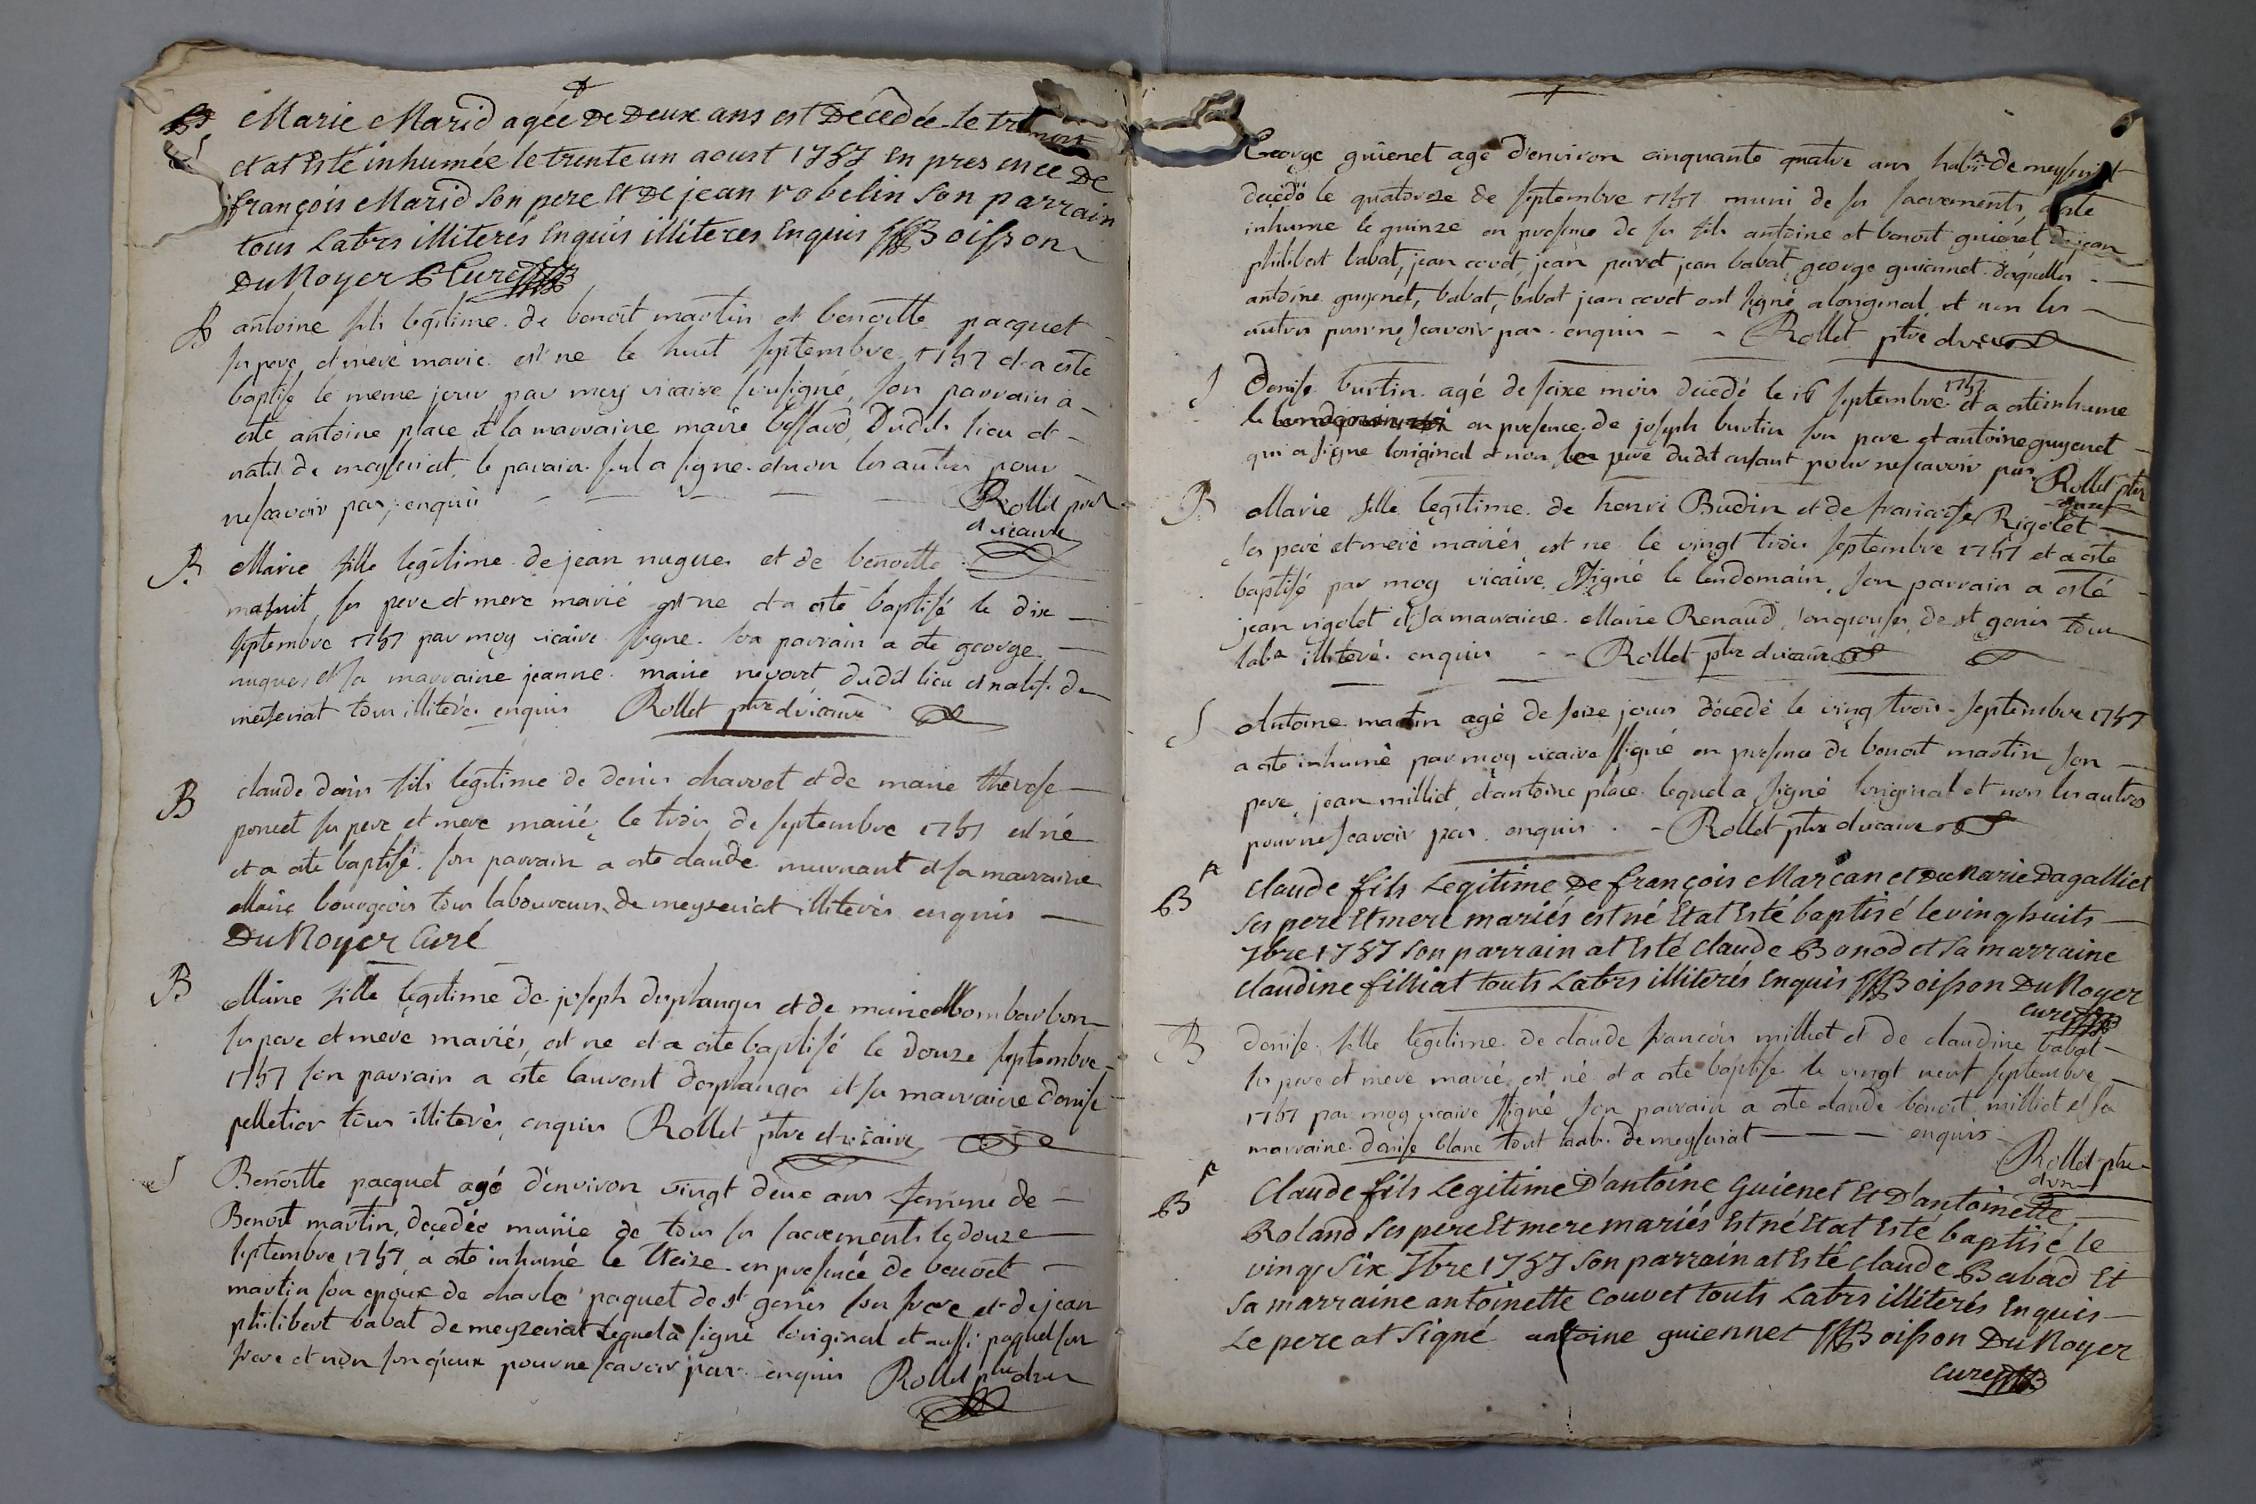 B
S
Marie Marid agée De Deux ans est Décedée le
et at Esté inhumée le trente un aoust 1757 En presence De
françois Marid son pere Et De jean robelin son parrain
tous Labrs illiterés Enquis illiteres Enquis Boisson
DuNoyer Curé
B antoine fils legitime de benoit martin et benoitte pacquet
ses pere et mere marie est ne le huit septembre 1757 et a esté
baptise le meme jour par moy vicaire soussigné, son parrain a
esté antoine place et la marraine marie bessard Dudit lieu et
natif de meyseriat, le parain seul a signe et non les autres pour
ne scavoir pas, enquis Rollet ptre
et vicaire
B Marie fille legitime de jean nugues et de benoitte
ses pere et mere marié est ne et a esté baptisé le dix
septembre 1757 par moy vicaire signe. son parrain a ete george
nugues et sa marraine jeanne marie dudit lieu et natifs de
meiseriat tous illiterés enquis Rollet ptre et vicaire
B claude denis fils legitime de denis charvet et de marie therese
poncet ses pere et mere marié, le trois de septembre 1757 est né
et a ete baptisé. son parrain a ete claude et sa marraine
Marie bourgeois tous laboureurs de meyzeriat illiterés enquis
DuNoyer Curé
B Marie fille legitime de joseph desplanges et de marie Mombarbon
ses pere et mere mariés, est ne et a ete baptisé le douze septembre
1757 son parrain a ete laurent desplanges et sa marraine denise
pelletier tous illiterés, enquis Rollet ptre et vicaire
S Benoitte pacquet agé d'environ vingt deux ans femme de
Benoit martin, decedée munie de tous ses sacrements le douze
septembre 1757 a ete inhumé le treize en presence de benoit
martin son epoux de charle paquet de st genis son frere et de jean
philibert babat de meyzeriat lequel a signé l'original et aussi paquet son
frere et non son epoux pour ne scavoir pas enquis Rollet ptre
George guienet agé d'environ cinquante quatre ans
decedé le quatorze de septembre 1757 muni de ses sacrements, a este
inhume le quinze en presence de ses fils antoine et benoit guienet, de jean
philibert babat, jean covet, jean perret jean babat, george guiennet desquelles
antoine guyenet, babat, babat jean covet ont signé a loriginal et non les
autres pour ne scavoir pas enquis Rollet ptre
S Denise burtin agé de seize mois decedé le 16 septembre 1757 et a este inhume
le en presence de joseph burtin son pere et antoine guyenet
qui a signe loriginal et non le pere dudit enfant pour ne scavoir pas Rollet ptre
B Marie fille legitime de henri Budin et de francoise Rigolet
ses peré et meré mariés, est ne le vingt trois septembre 1757 et a este
baptisé par moy vicaire signé le lendemain, son parrain a esté
jean rigolet et sa marraine Marie Renaud, de st genis tous
labr illiteré enquis Rollet ptre et vicaire
S Antoine martin agé de seize jours decedé le vingt trois septembre 1757
a ete inhumé par moy vicaire signé en presence de benoit martin son
pere, jean milliet, et antoine place lequel a signé loriginal et non les autres
pour ne scavoir pas enquis Rollet ptre et vicaire
B claude fils Legitime De françois Marcan et De Marie Dagalliet
ses pere Et mere mariés est né Et at Esté baptisé le vingt huits
7bre 1757 son parrain at Esté claude Bonod et sa marraine
claudine filliat touts Labrs illiterés Enquis Boisson DuNoyer
curé
B Denise fille legitime de claude francois milliet et de claudine babat
ses pere et mere marié, est né et a ete baptisé le vingt neuf septembre
1757 par moy vicaire signé son parrain a ete claude benoit milliet et sa
marraine denise blanc tout labr. de meyseriat enquis
Rollet ptre
B Claude fils Legitime D'antoine Guienet Et D'antoinette
Roland ses pere Et mere mariés Est né Et at Esté baptisé le
vingt Six 7bre 1757 son parrain at Esté claude Babad Et
sa marraine antoinette couvet touts Labrs illiterés Enquis
Le pere at Signé antoine guiennet Boisson DuNoyer
curé